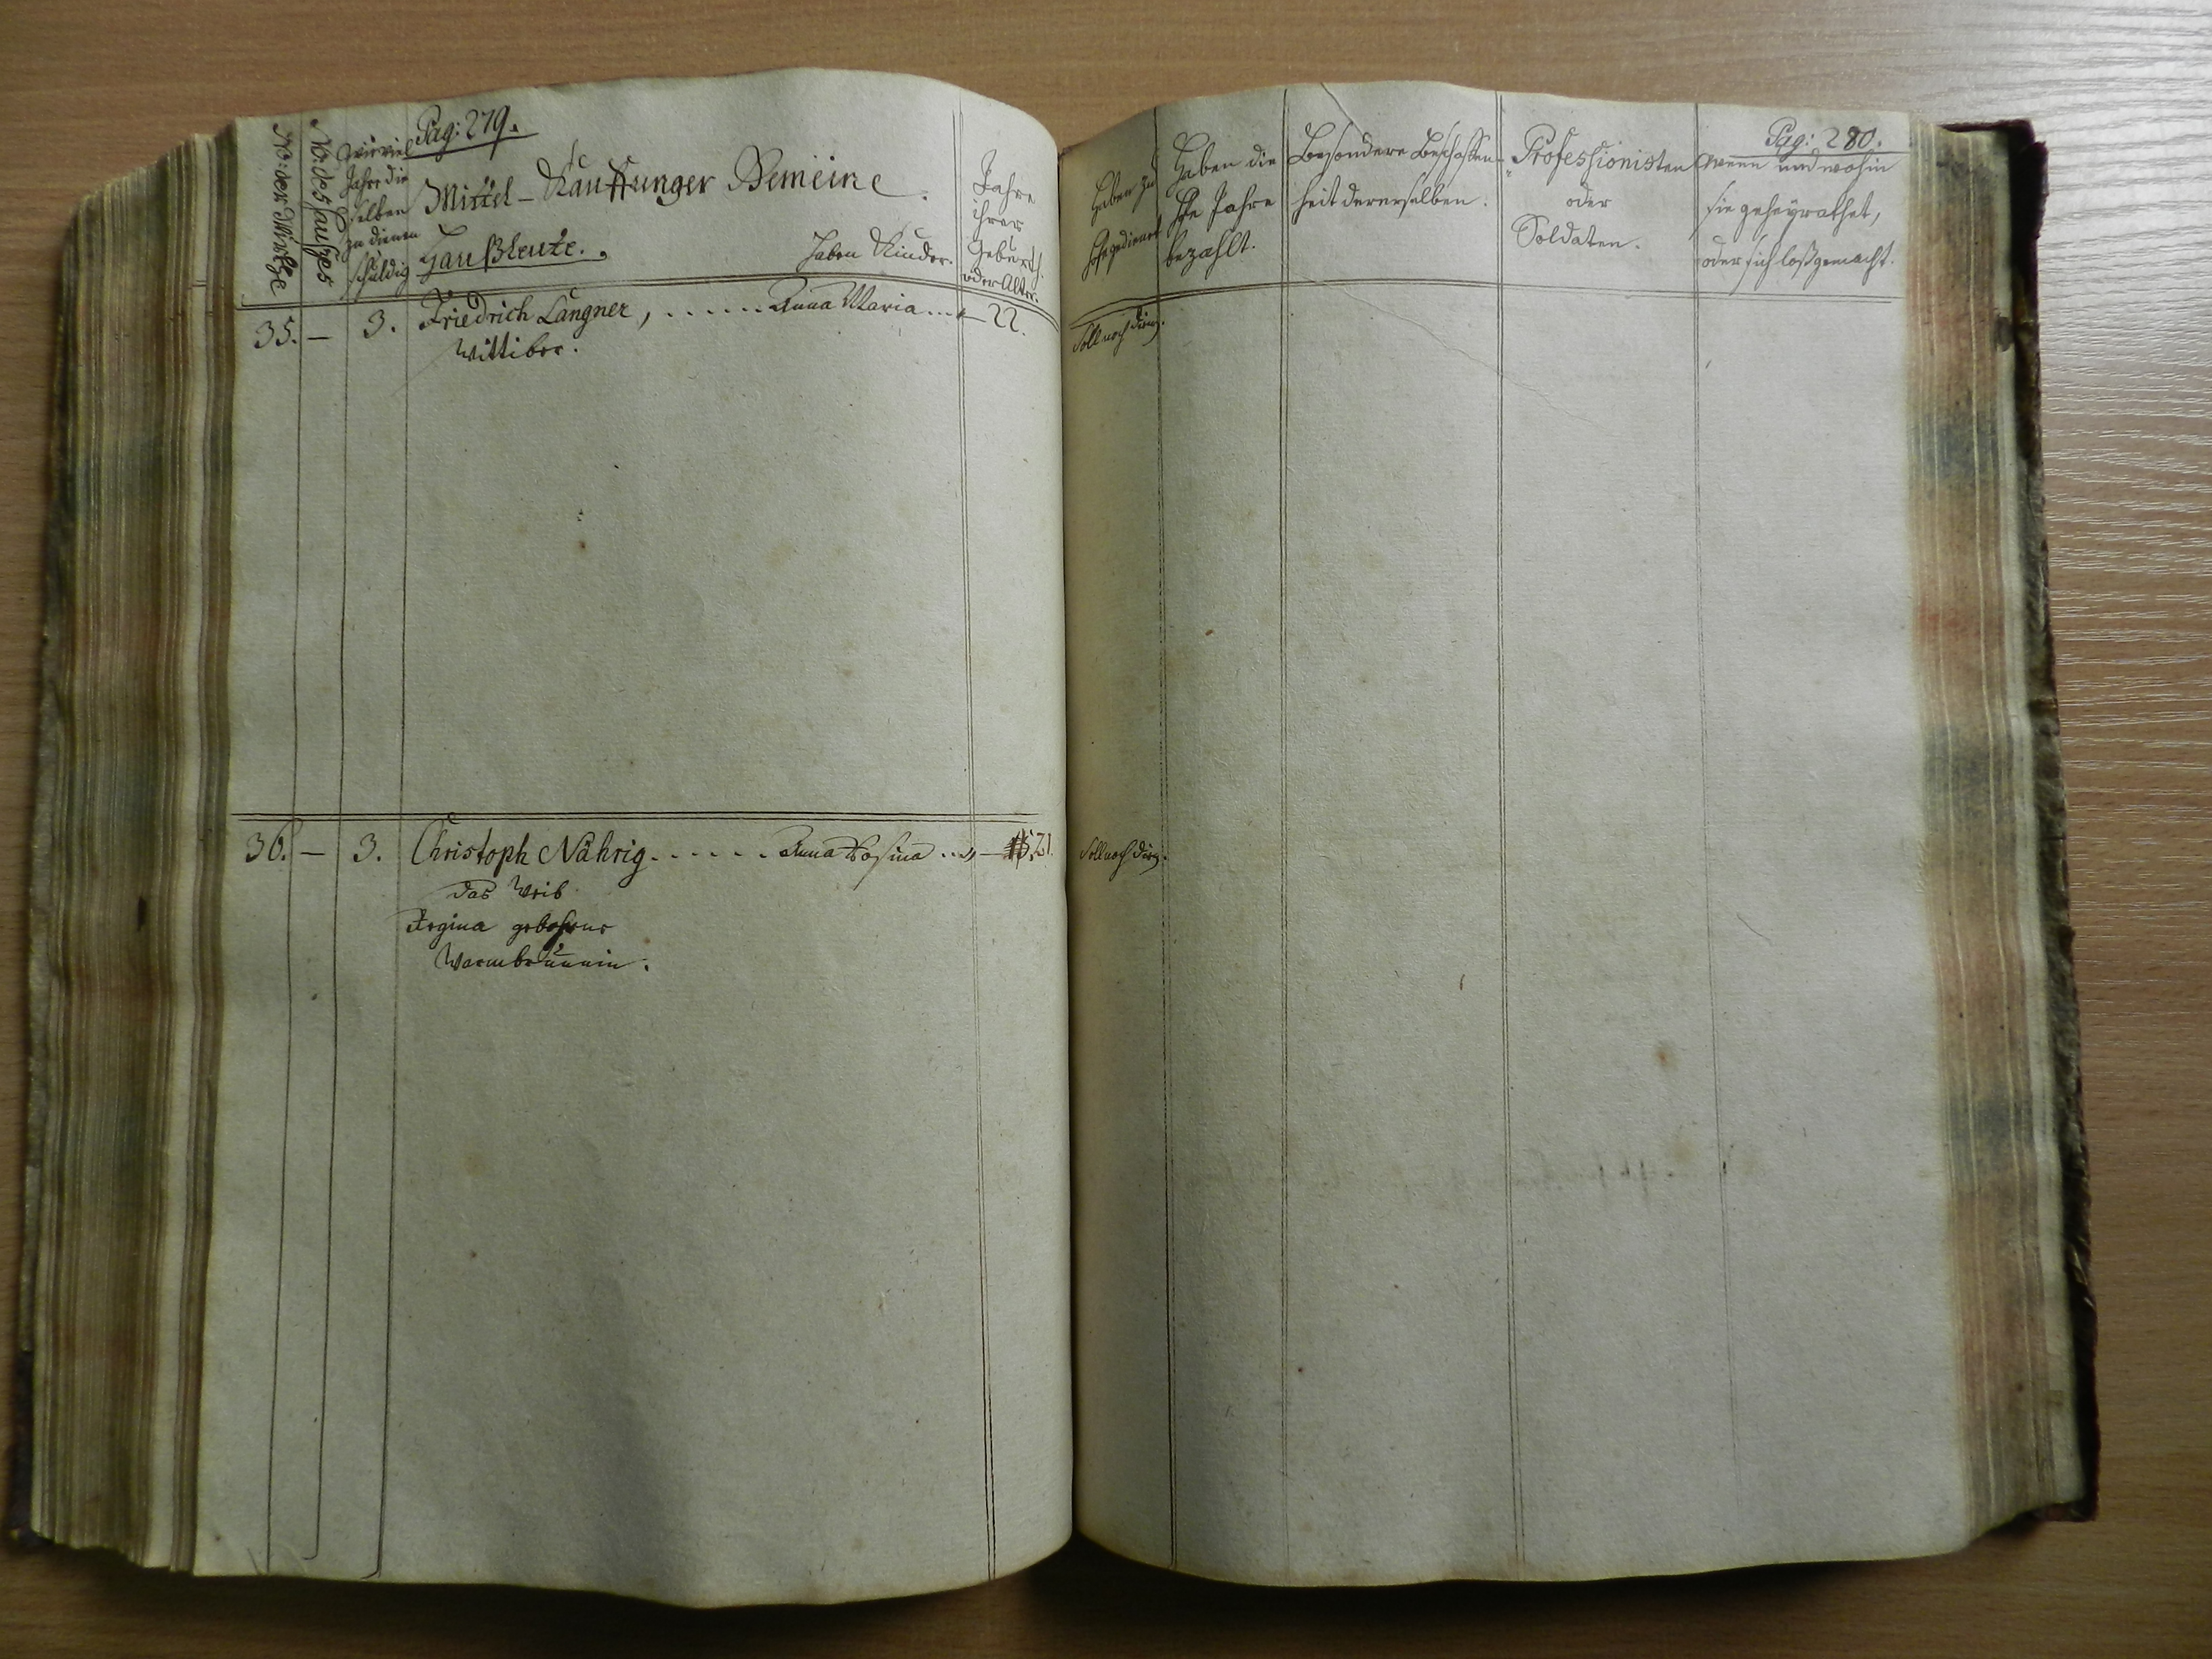 Pag: 279.
No: der Wirthe
No: des Haußes
Wie viel
Jahre die
selben
zu dienen
schuldig
Mittel - Kauffunger Gemeine.
Haußleute.
haben Kinder.
Jahre
ihrer
Geburth.
oder Alter.
35. — 3. Friedrich Langner, . . . . . . Anna Maria . . . — 22.
Wittiber.
36. — 3. Christoph Nährig . . . . . . Anna Rosina . . „ — 21.
das Weib
Regina gebohrne
Warmbrunnin.
Pag: 280.
Haben zu
Hofe gedienet
Haben die
Jahre
bezahlt.
Besondere Beschaffen-
heit dererselben.
Professionisten
oder
Soldaten.
wenn und wohin
sie geheyrathet,
oder sich loßgemacht.
Soll noch dien.
Soll noch dien.